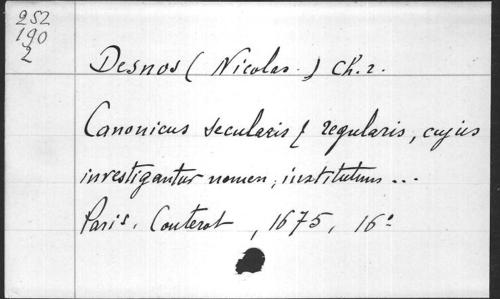 252
190
2
Desnos (Nicolas.) Ch. r.
Canonicus secularis & regularis, cujus
investigantur nomen, institutum ...
Paris. Couterot, 1675, 16°